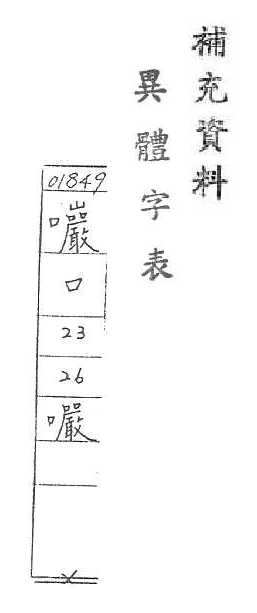 補充資料
異體字表
01849
口
23
26
㘙